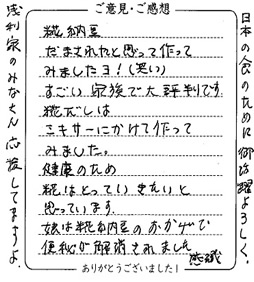 ご意見・ご感想
糀納豆
だまされたと思って作って
みましたヨ!(笑い)
すごい 家族で大評判です。
糀だしは
ミキサーにかけて作って
みました。
健康のため
糀はとっていきたいと
思っています。
娘は糀納豆のおかげで
便秘が解消されました
感誠
ありがとうございました!
日本の食のために御活躍よろしく、
浅利家のみなさん応援してますよ。